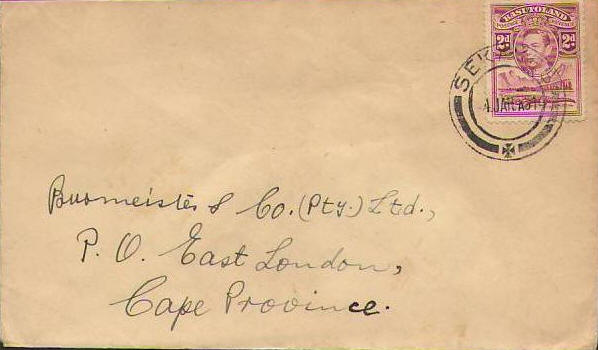 BASUTOLAND
POSTAGE REVENUE
2d 2d
Burmeister & Co. (Pty.) Ltd.,
P. O. East London,
Cape Province.